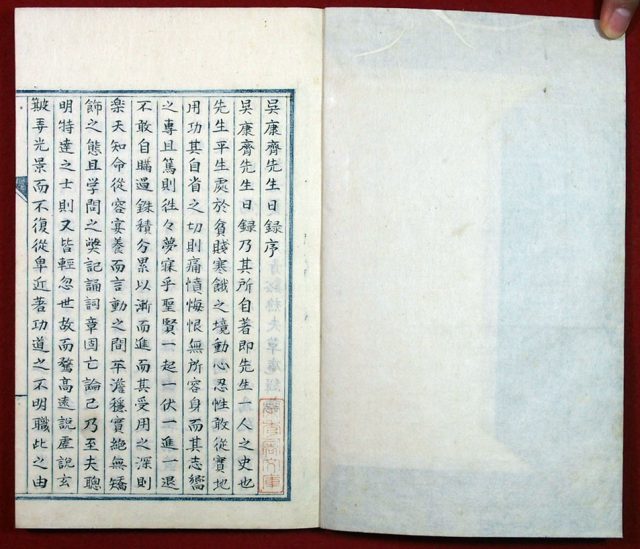 吳康齋先生日錄序
吳康齋先生日錄乃其所自著即先生一人之史也
先生平生處於貧賤寒餓之境動心忍性敢從實地
用功其自省之切則痛憤悔恨無所容身而其志嚮
之專且篤則徃々夢寐乎聖賢一起一伏一進一退
不敢自瞞過銖積分累以漸而進而其受用之深則
樂天知命從容宴養而言動之間平澹穩實絶無矯
飾之態且学問之獘記誦詞章固亡論已乃至夫聰
明特達之士則又皆輕忽世故而騖高遠說虛說玄
皷弄光景而不復從卑近著功道之不明職此之由